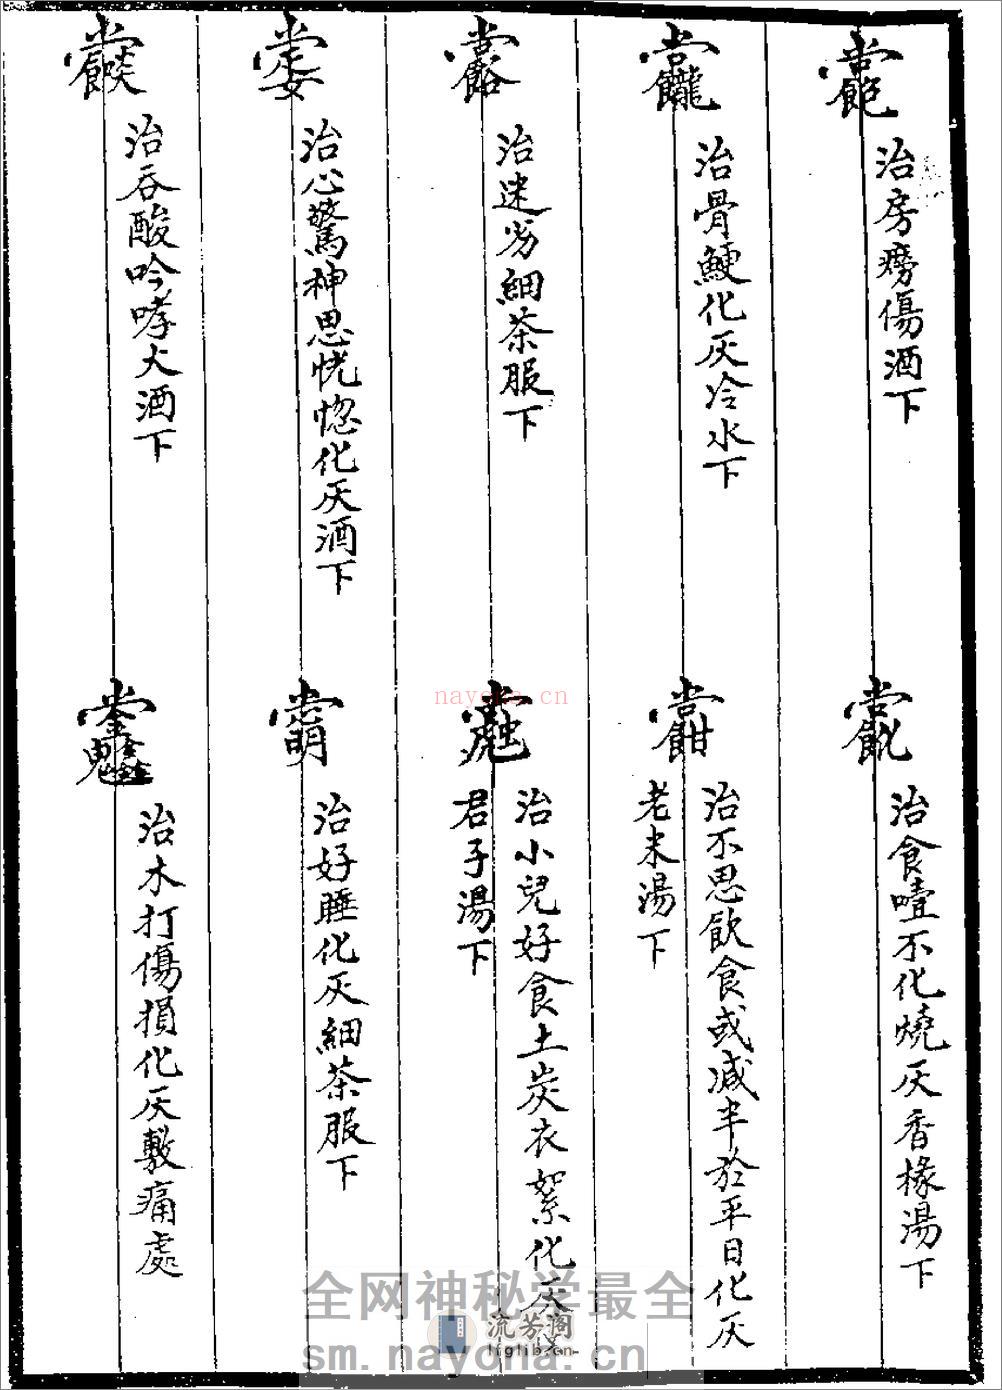 治房癆傷酒下
治食噎不化燒灰香椽湯下
治骨鯁化灰冷水下
治不思飲食或减半於平日化灰
老米湯下
治迷劣細茶服下
治小兒好食土炭衣絮化灰使
君子湯下
治心驚神思恍惚化灰酒下
治好睡化灰細茶服下
治吞酸吟哮大酒下
治木打傷損化灰敷痛處
nayona.cn
全网神秘学最全
流芳阁
lfglib.cn
sm.nayona.cn